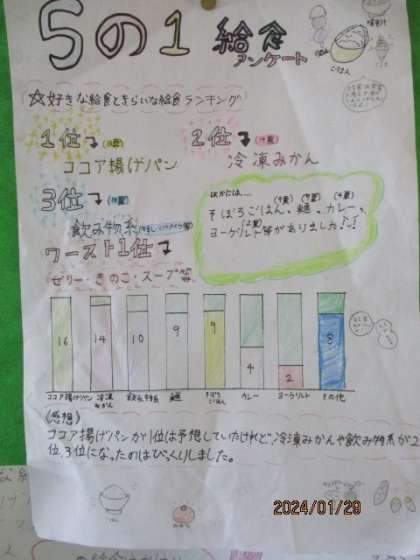 5の1 給食
アンケート
☆好きな給食ときらいな給食ランキング
1位
ココア揚げパン
2位
冷凍みかん
3位
飲み物系
ワースト1位
ゼリー・きのこ・スープ
ほかには…
そぼろごはん、麺、カレー、
ヨーグルト等がありました!!
16 14 10 9 9 4 2 8
ココア揚げパン 冷凍みかん 飲み物系 麺 そぼろごはん カレー ヨーグルト その他
《感想》
ココア揚げパンが1位は予想していたけれど、冷凍みかんや飲み物系が2
位、3位になったのはびっくりしました。
2024/01/29